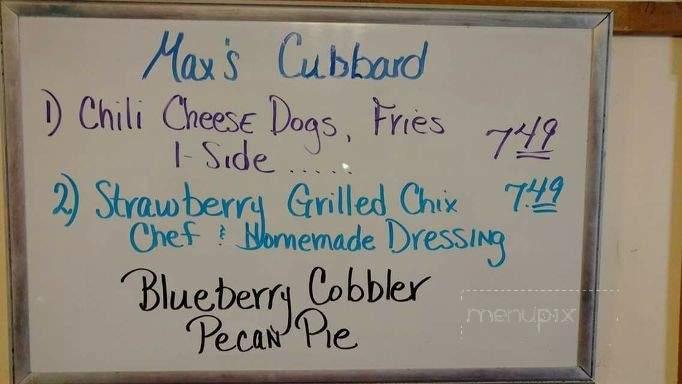 Max's Cubbard
1) Chili Cheese Dogs, Fries
1-Side ..... 7.49
2) Strawberry Grilled Chix 7.49
Chef & Homemade Dressing
Blueberry Cobbler
Pecan Pie
menupix